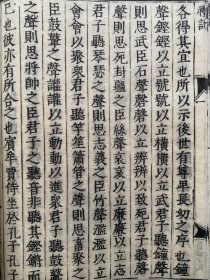 禮記
各得其宜也所以示後世有尊卑長幼之序也鐘
聲鏗鏗以立號號以立橫橫以立武君子聽鐘聲
則思武臣石聲磬磬以立辨辨以致死君子聽磬
聲則思死封疆之臣絲聲哀哀以立廉廉以立志
君子聽琴瑟之聲則思志義之臣竹聲濫濫以立
會會以聚衆君子聽竽笙簫管之聲則思畜聚之
臣鼓鼙之聲讙讙以立動動以進衆君子聽鼓鼙
之聲則思將帥之臣君子之聽音非聽其鏗鏘而
已也彼亦有所合之也賓牟賈侍坐於孔子孔子